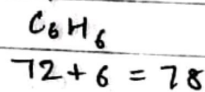 C₆H₆
72 + 6 = 78